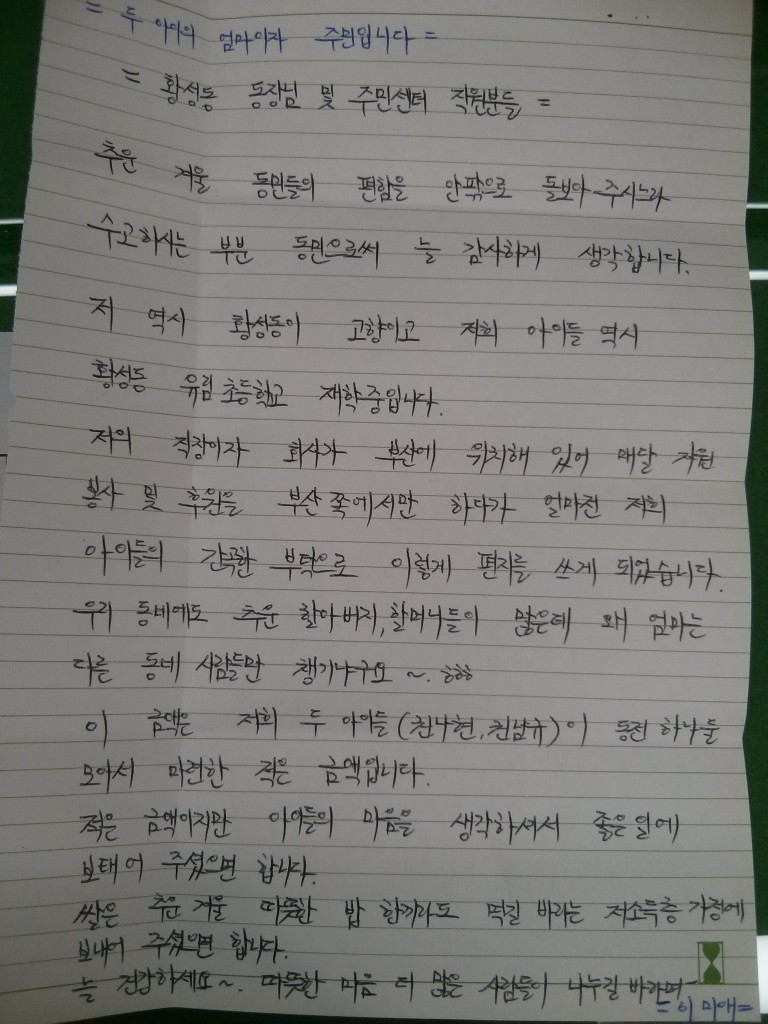 = 두 아이의 엄마이자 주민입니다 =
= 황성동 동장님 및 주민센터 직원분들 =
추운 겨울 동민들의 편함을 안팎으로 돌보아 주시느라
수고하시는 부분 동민으로써 늘 감사하게 생각합니다.
저 역시 황성동이 고향이고 저희 아이들 역시
황성동 유림초등학교 재학중입니다.
저의 직장이자 회사가 부산에 위치해 있어 매달 자원
봉사 및 후원을 부산쪽에서만 하다가 얼마전 저희
아이들의 간곡한 부탁으로 이렇게 편지를 쓰게 되었습니다.
우리 동네에도 추운 할아버지, 할머니들이 많은데 왜 엄마는
다른 동네 사람들만 챙기냐구요 ~. ㅎㅎㅎ
이 금액은 저희 두 아이들 (천나현, 천남규)이 동전 하나둘
모아서 마련한 적은 금액입니다.
적은 금액이지만 아이들의 마음을 생각하셔서 좋은일에
보태어 주셨으면 합니다.
쌀은 추운 겨울 따뜻한 밥 한끼라도 먹길 바라는 저소득층 가정에
보내어 주셨으면 합니다.
늘 건강하세요~. 따뜻한 마음 더 많은 사람들이 나누길 바라며
= 이미애 =